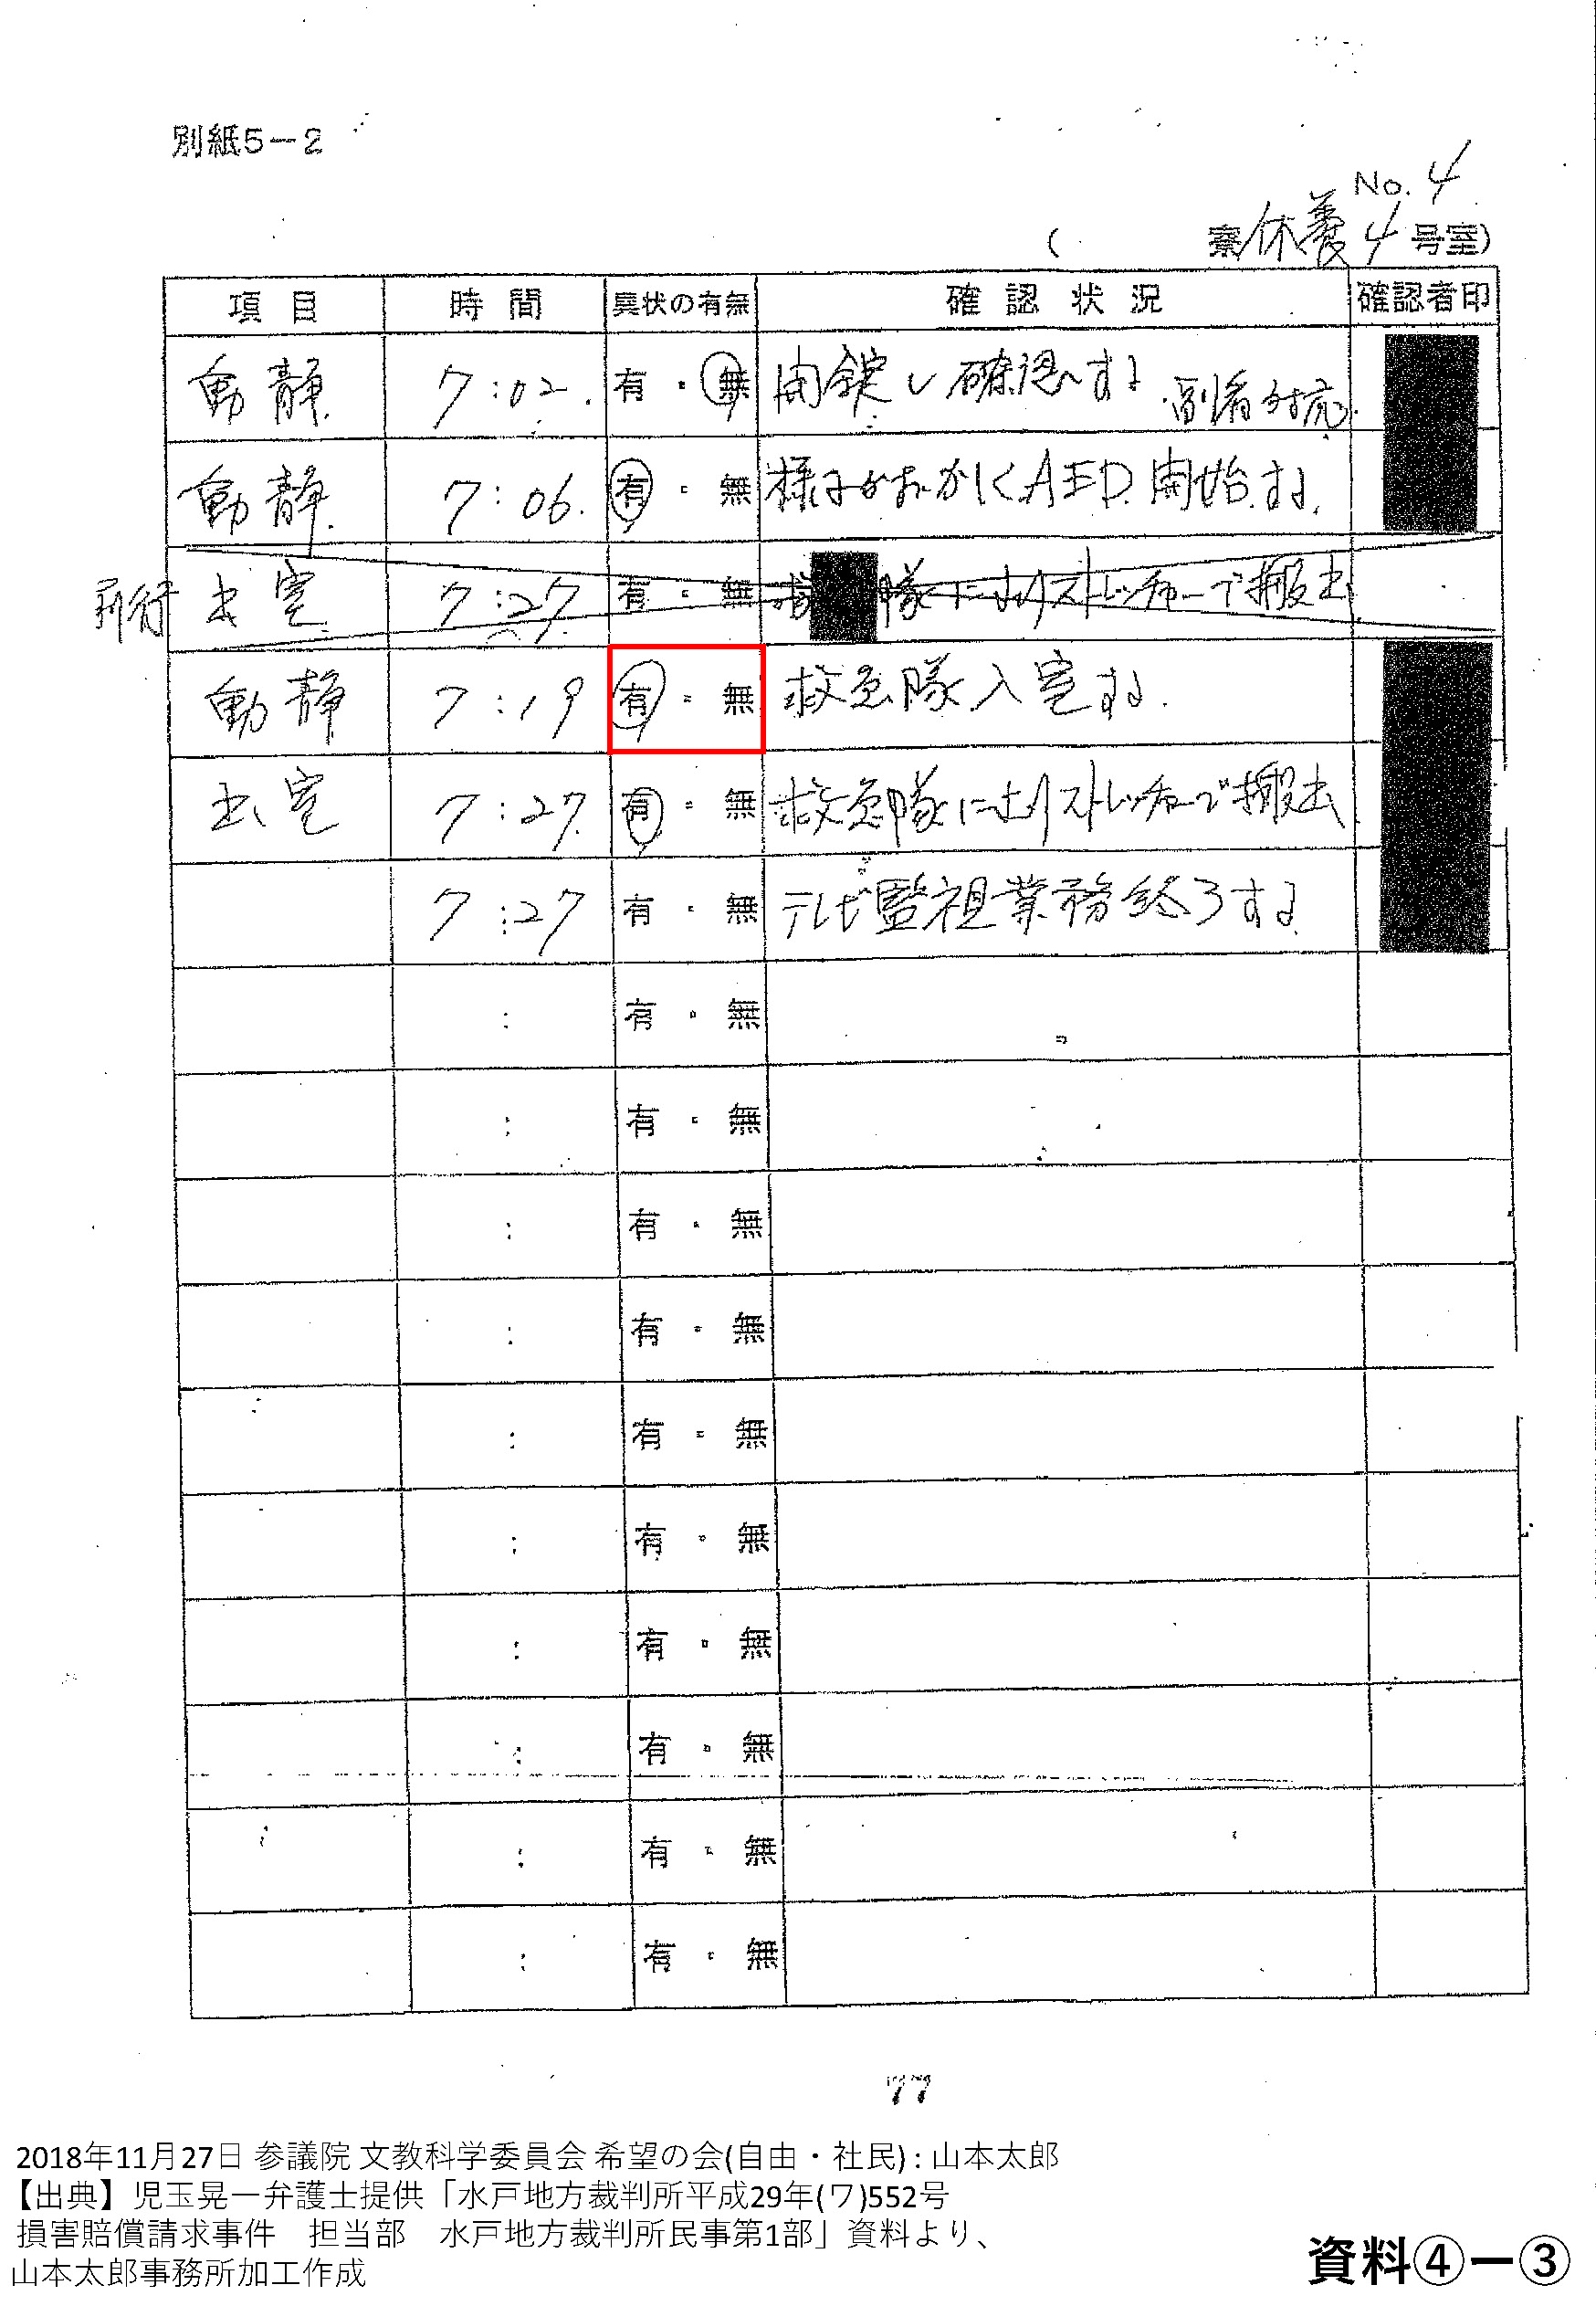 別紙5-2
No. 4
( 寮 休養 4 号室)
項目 時間 異状の有無 確認状況 確認者印
動静 7:02 有・無 開錠し確認する 副看対応
動静 7:06 有・無 様子がおかしくAED開始する
出室 7:27 有・無 隊によりストレッチャーで搬出
動静 7:19 有・無 救急隊入室する
出室 7:27 有・無 救急隊によりストレッチャーで搬出
7:27 有・無 テレビ監視業務終了する
: 有・無
: 有・無
: 有・無
: 有・無
: 有・無
: 有・無
: 有・無
: 有・無
: 有・無
: 有・無
77
2018年11月27日 参議院 文教科学委員会 希望の会(自由・社民) : 山本太郎
【出典】児玉晃一弁護士提供「水戸地方裁判所平成29年(ワ)552号
損害賠償請求事件 担当部 水戸地方裁判所民事第1部」資料より、
山本太郎事務所加工作成
資料④ー③